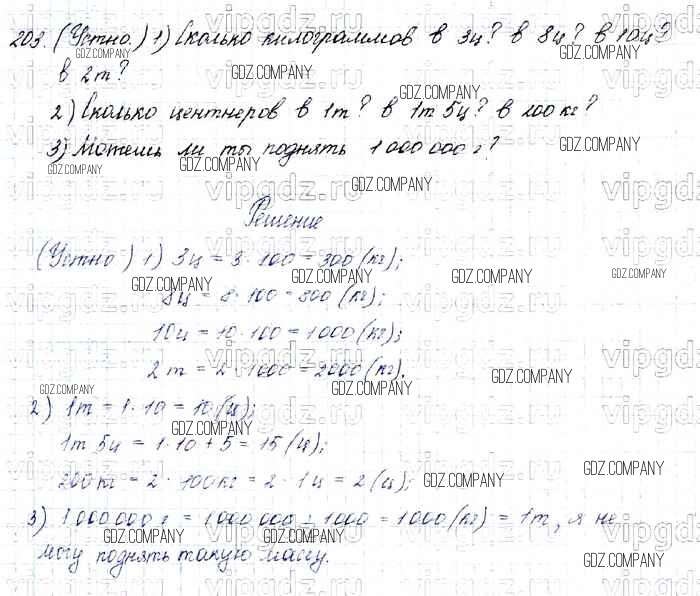 203. (Устно.) 1) Сколько килограммов в 3ц? в 8ц? в 10ц?
в 2т?
2) Сколько центнеров в 1т? в 1т 5ц? в 200 кг?
3) Можешь ли ты поднять 1 000 000 г?
Решение
(Устно) 1) 3ц = 3 · 100 = 300 (кг);
8ц = 8 · 100 = 800 (кг);
10ц = 10 · 100 = 1000 (кг);
2т = 2 · 1000 = 2000 (кг).
2) 1т = 1 · 10 = 10 (ц);
1т 5ц = 1 · 10 + 5 = 15 (ц);
200 кг = 2 · 100 кг = 2 · 1ц = 2 (ц);
3) 1 000 000 г = 1 000 000 : 1000 = 1000 (кг) = 1т, я не
могу поднять такую массу.
GDZ.COMPANY
vipgdz.ru